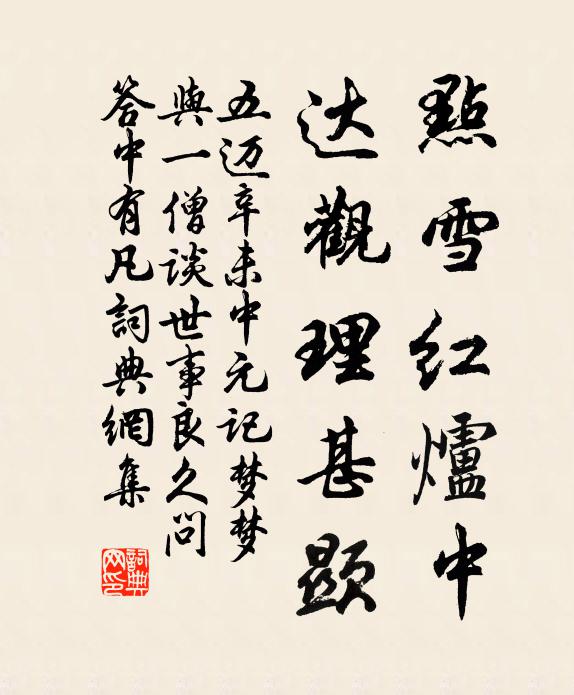 點雪红爐中
达觀理甚顕
五迈辛未中元记梦梦
與一僧談世事良久问
答中有凡詞典網集
詞典
网印